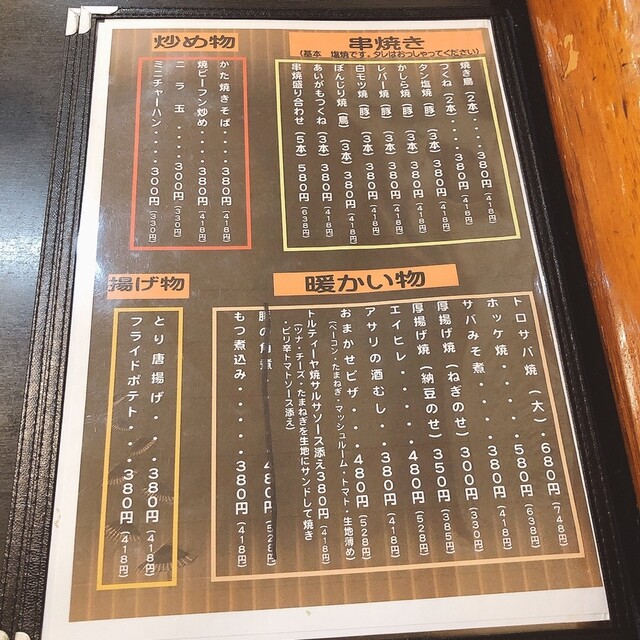 串焼き
(基本 塩焼です。タレはおっしゃってください)
焼き鳥(2本)・・・・380円(418円)
つくね(2本)・・・・380円(418円)
タン塩焼(豚)(3本)380円(418円)
かしら焼(豚)(3本)380円(418円)
レバー焼(豚)(3本)380円(418円)
白モツ焼(豚)(3本)380円(418円)
ぼんじり焼(鳥)(3本)380円(418円)
あいがもつくね(3本)380円(418円)
串焼盛り合わせ(5本)580円(638円)
炒め物
かた焼きそば・・・・380円(418円)
焼ビーフン炒め・・・380円(418円)
ニラ玉・・・・300円(330円)
ミニチャーハン・・・300円(330円)
暖かい物
トロサバ焼(大)・680円(748円)
ホッケ焼・・・・・580円(638円)
サバみそ煮・・・・380円(418円)
厚揚げ焼(ねぎのせ)300円(330円)
厚揚げ焼(納豆のせ)350円(385円)
エイヒレ・・・・・480円(528円)
アサリの酒むし・・380円(418円)
おまかせピザ・・・480円(528円)
(ベーコン・たまねぎ・マッシュルーム・トマト・生地薄め)
トルティーヤ焼サルサソース添え380円(418円)
(ツナ・チーズ・たまねぎを生地にサンドして焼き
・ピリ辛トマトソース添え)
豚の角煮・・・・・480円(528円)
もつ煮込み・・・・380円(418円)
揚げ物
とり唐揚げ・・・・380円(418円)
フライドポテト・・・380円(418円)